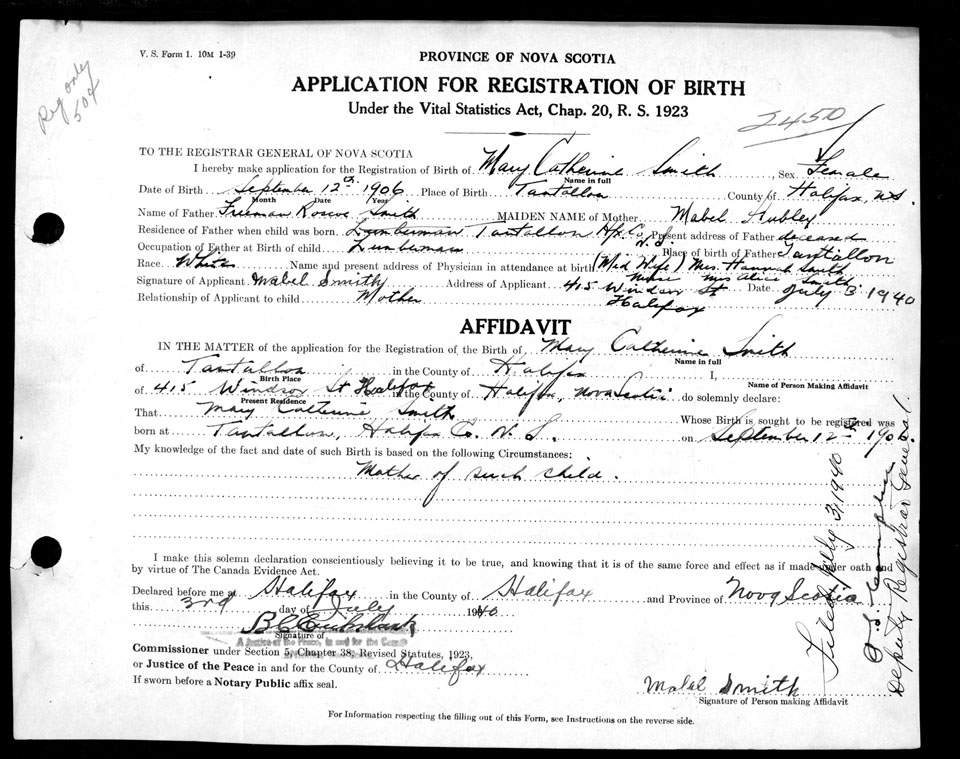 V. S. Form 1. 10M 1-39
Reg only
50¢
PROVINCE OF NOVA SCOTIA
APPLICATION FOR REGISTRATION OF BIRTH
Under the Vital Statistics Act, Chap. 20, R. S. 1923
2450
TO THE REGISTRAR GENERAL OF NOVA SCOTIA
I hereby make application for the Registration of Birth of Mary Catherine Smith Sex Female
Name in full
Date of Birth September 12th 1906 Place of Birth Tantallon County of Halifax, N.S.
Month Date Year
Name of Father Freeman Roscoe Smith MAIDEN NAME of Mother Mabel Hubley
Residence of Father when child was born Lumberman Tantallon Hfx. Co. N.S. Present address of Father deceased
Occupation of Father at Birth of child Lumberman Place of Birth of Father Tantallon
Race White Name and present address of Physician in attendance at birth (Mid Wife) Mrs. Hannah Smith
Nurse Mrs. Alice Smith
Signature of Applicant Mabel Smith Address of Applicant 415 Windsor St Date July 3 1940
Relationship of Applicant to child Mother Halifax
AFFIDAVIT
IN THE MATTER of the application for the Registration of the Birth of Mary Catherine Smith
Name in full
of Tantallon in the County of Halifax I,
Birth Place Name of Person Making Affidavit
of 415 Windsor St Halifax in the County of Halifax, Nova Scotia do solemnly declare:
Present Residence
That Mary Catherine Smith Whose Birth is sought to be registered was
born at Tantallon, Halifax Co. N. S. on September 12th 1906
My knowledge of the fact and date of such Birth is based on the following Circumstances:
Mother of such child.
I make this solemn declaration conscientiously believing it to be true, and knowing that it is of the same force and effect as if made under oath and
by virtue of The Canada Evidence Act.
Declared before me at Halifax in the County of Halifax and Province of Nova Scotia
this 3rd day of July 1940
Signature of
A Justice of the Peace, in and for the County
Commissioner under Section 5, Chapter 38, Revised Statutes, 1923,
or Justice of the Peace in and for the County of Halifax
If sworn before a Notary Public affix seal.
Mabel Smith
Signature of Person making Affidavit
For Information respecting the filling out of this Form, see Instructions on the reverse side.
Filed July 3, 1940
Deputy Registrar General.